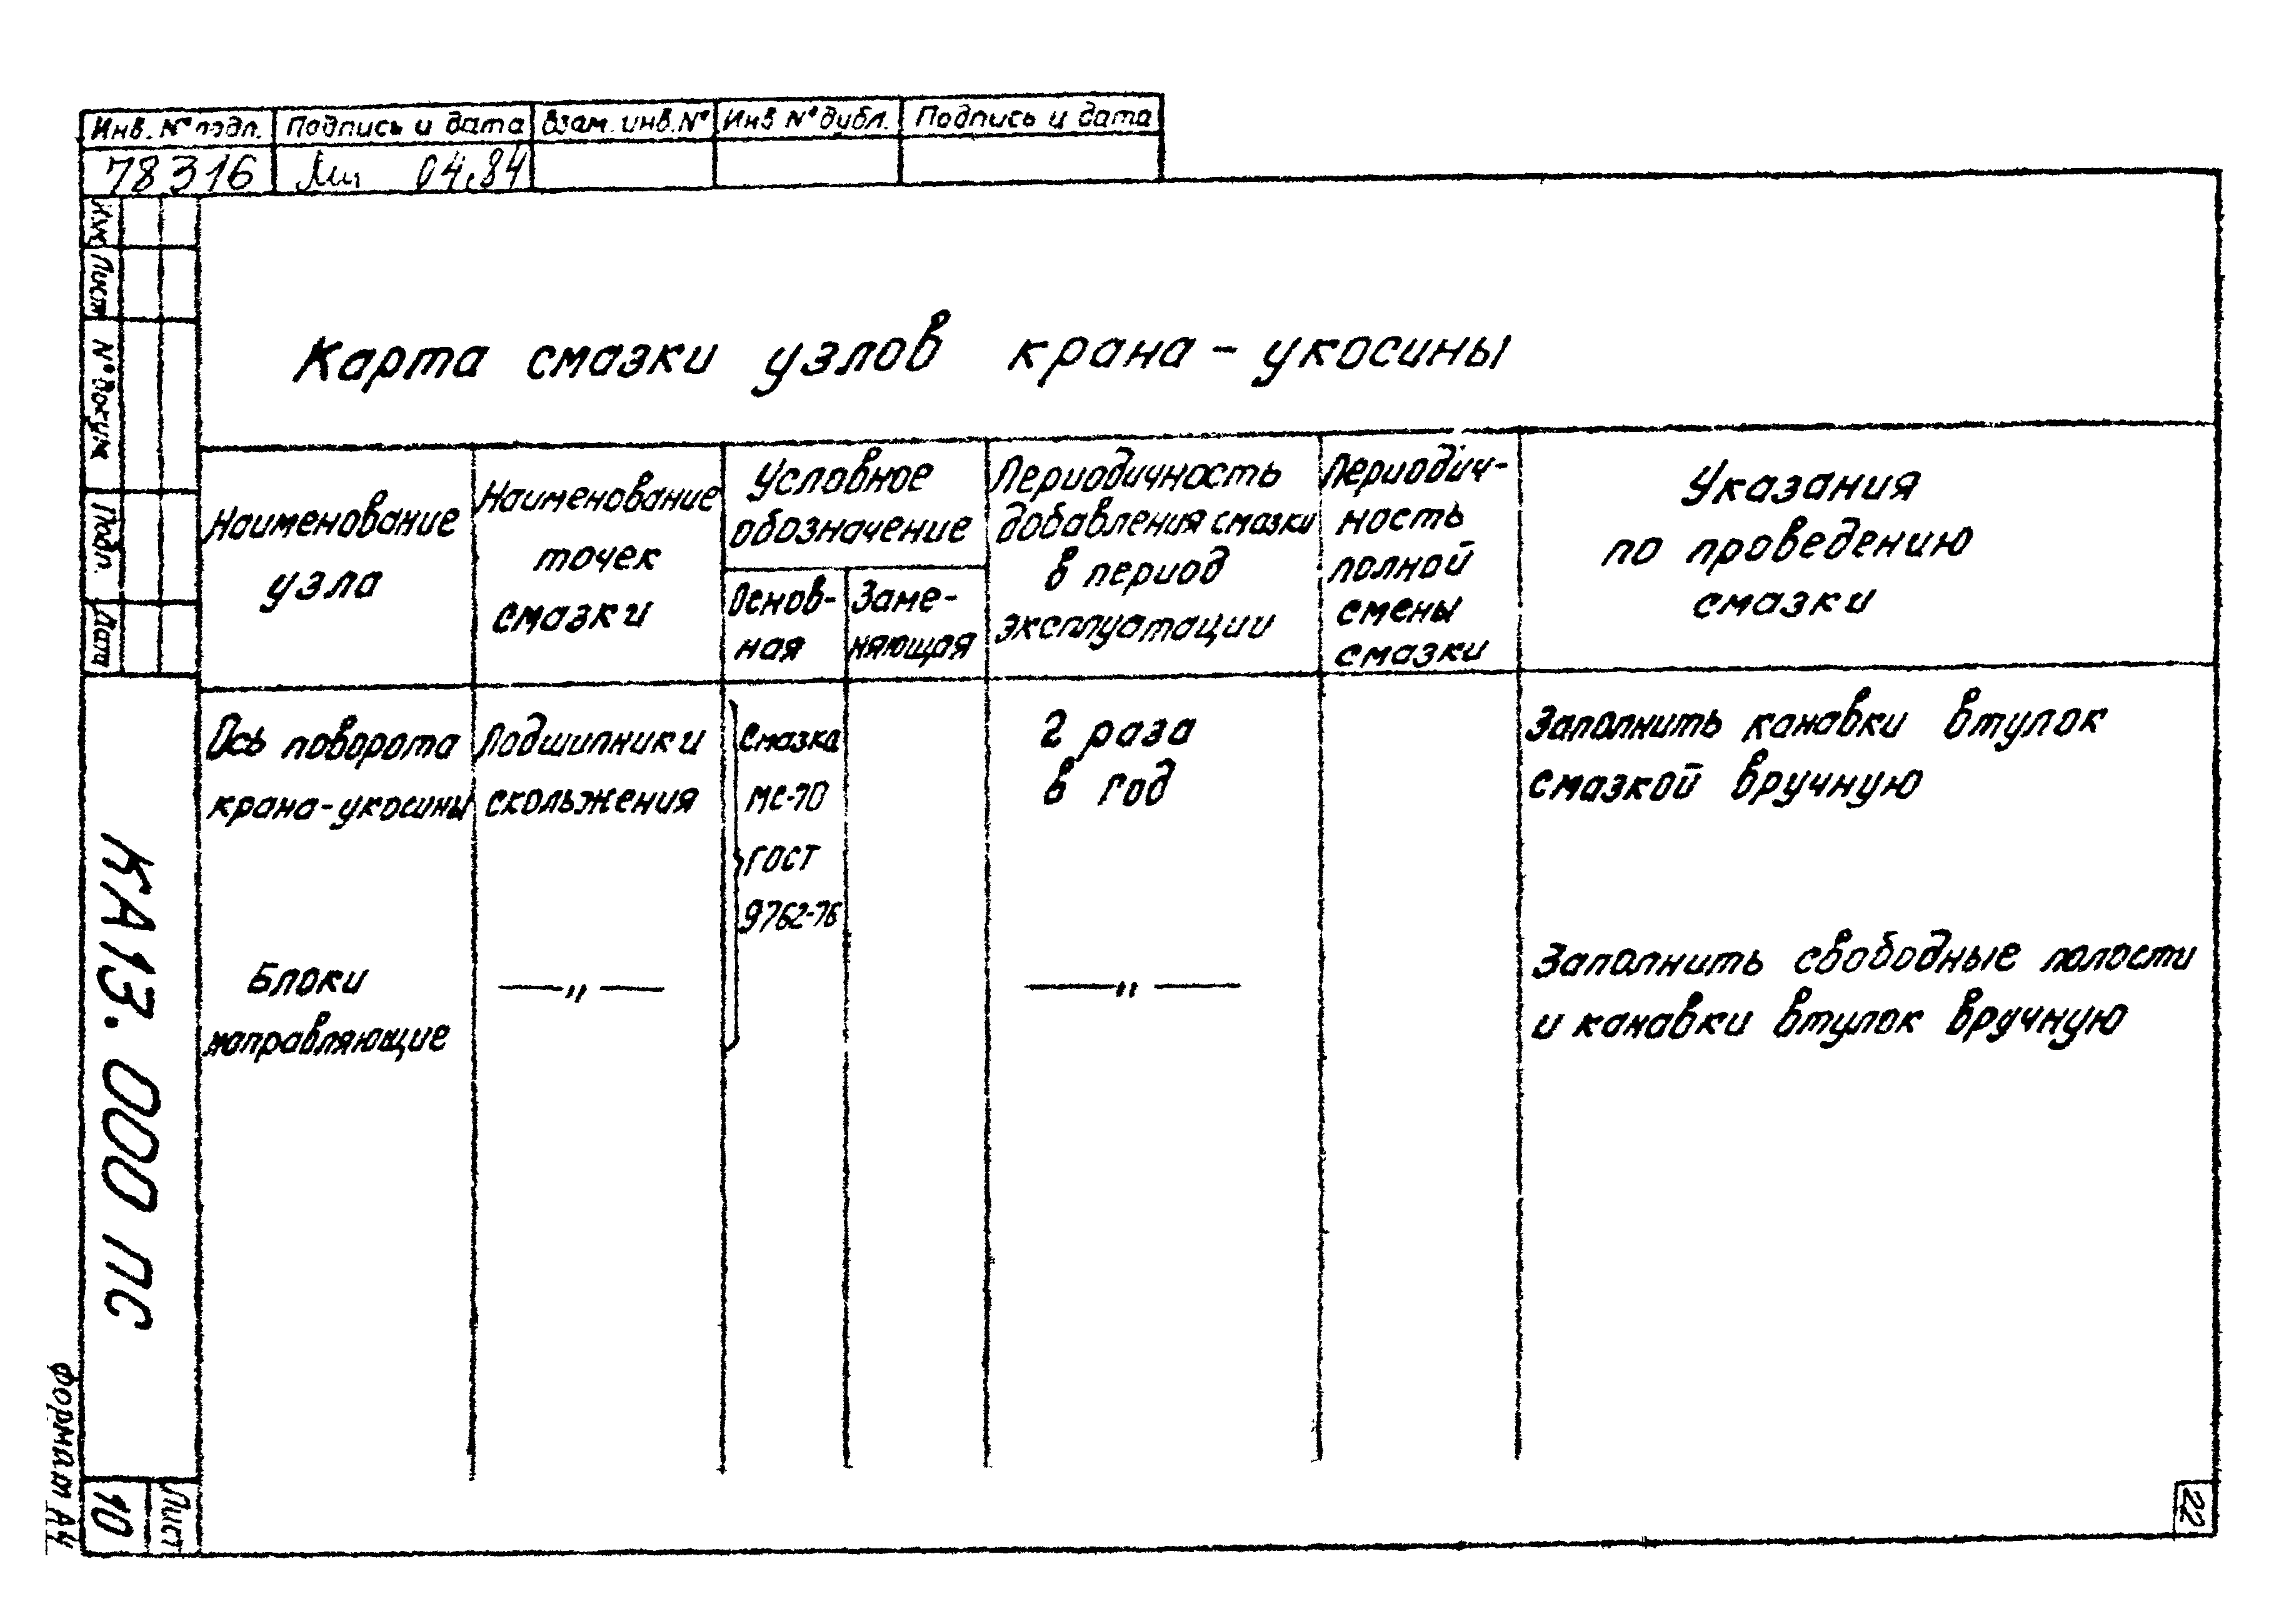 Инв. № подл. Подпись и дата Взам. инв. № Инв № дубл. Подпись и дата
78316 04.84
Изм
Лист
№ докум
Подп.
Дата
Карта смазки узлов крана-укосины
Наименование
узла
Наименование
точек
смазки
Условное
обозначение
Основ-
ная
Заме-
няющая
Периодичность
добавления смазки
в период
эксплуатации
Периодич-
ность
полной
смены
смазки
Указания
по проведению
смазки
Ось поворота
крана-укосины
Подшипники
скольжения
Смазка
МС-70
ГОСТ
9762-76
2 раза
в год
Заполнить канавки втулок
смазкой вручную
Блоки
направляющие
—"—
—"—
Заполнить свободные полости
и канавки втулок вручную
КА13.000 ПС
Формат А4
Лист
10
22